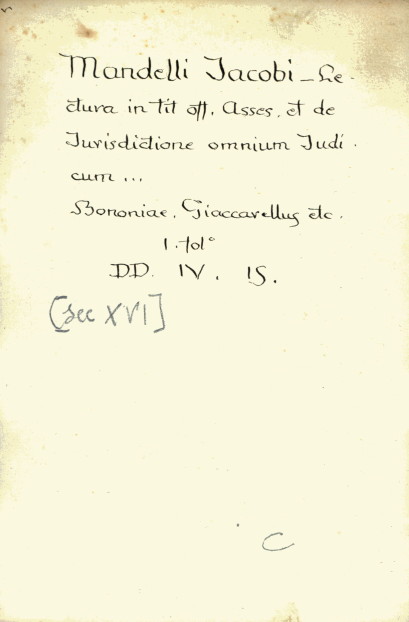 Mandelli Jacobi - Le-
ctura in tit off. Asses. et de
Jurisdictione omnium Judi-
cum ...
Bononiae, Giaccarellus etc.
1. fol°
DD. IV. 15.
[sec XVI]
C